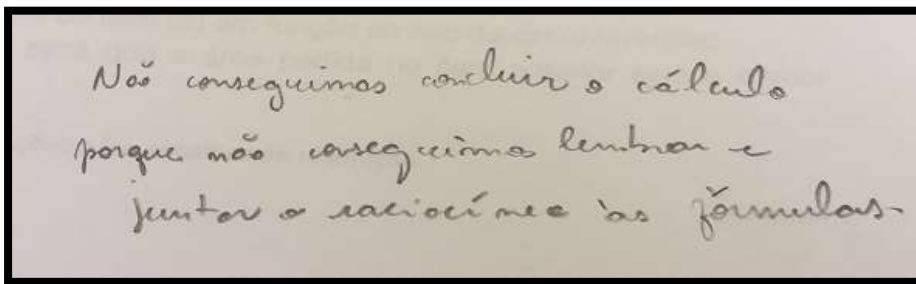 Não conseguimos concluir o cálculo
porque não conseguimos lembrar e
juntar o raciocíneo às fórmulas.